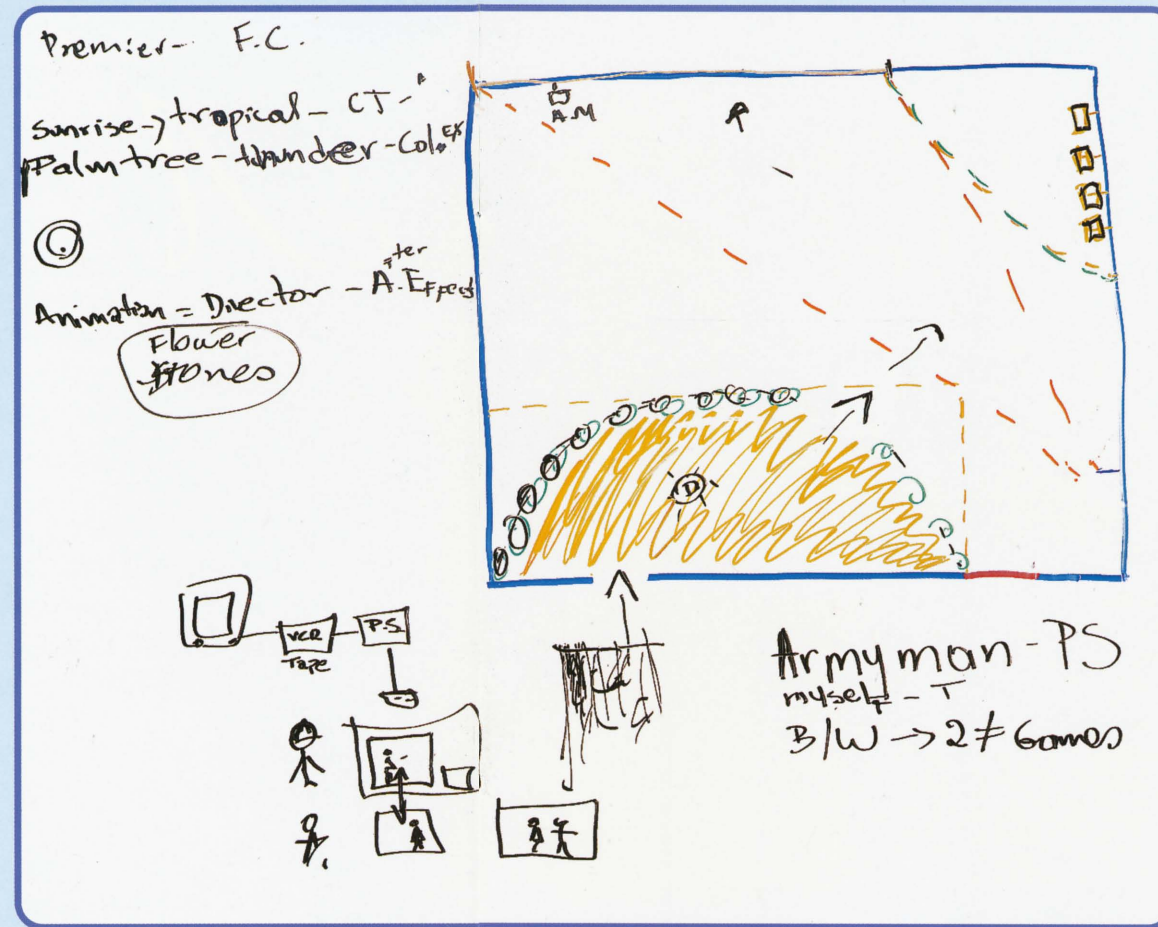 Premier- F.C.
sunrise→tropical - CT -
Palm tree - thunder - Col.
Animation = Director - After Effects
Flower
stones
A.M
D
VCR
P.S.
Tape
Army man - PS
myself - T
B/W → 2 ≠ Games